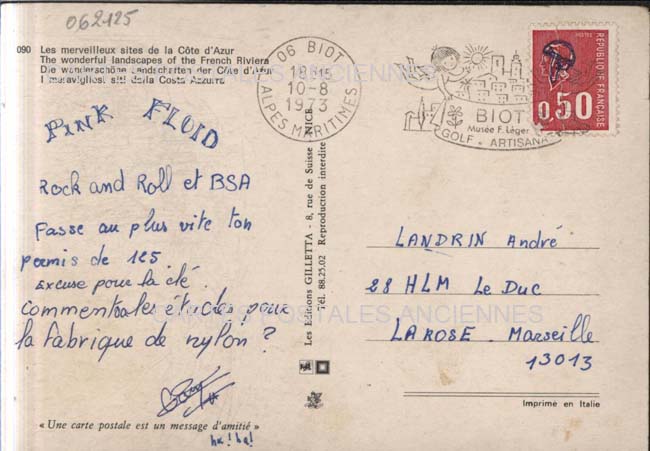 062125
090 Les merveilleux sites de la Côte d'Azur
The wonderful landscapes of the French Riviera
Die wunderschöne Landschaften der Côte d'Azur
I maravigliosi siti della Costa Azzurra
PINK FLOID
Rock and Roll et BSA
Passe au plus vite ton
permis de 125.
Excuse pour la clé.
Comment vont les études pour
la fabrique de nylon ?
« Une carte postale est un message d'amitié »
ha! ha!
Les Editions GILLETTA - 8, rue de Suisse - NICE
Tél. 88.25.02 Reproduction interdite
06 BIOT
18H15
10-8
1973
ALPES MARITIMES
BIOT
Musée F. Léger
GOLF - ARTISANAT
POSTES
REPUBLIQUE FRANÇAISE
0,50
LANDRIN André
28 HLM Le Duc
LAROSE. Marseille
13013
Imprimé en Italie
CARTES POSTALES ANCIENNES
CARTES POSTALES ANCIENNES